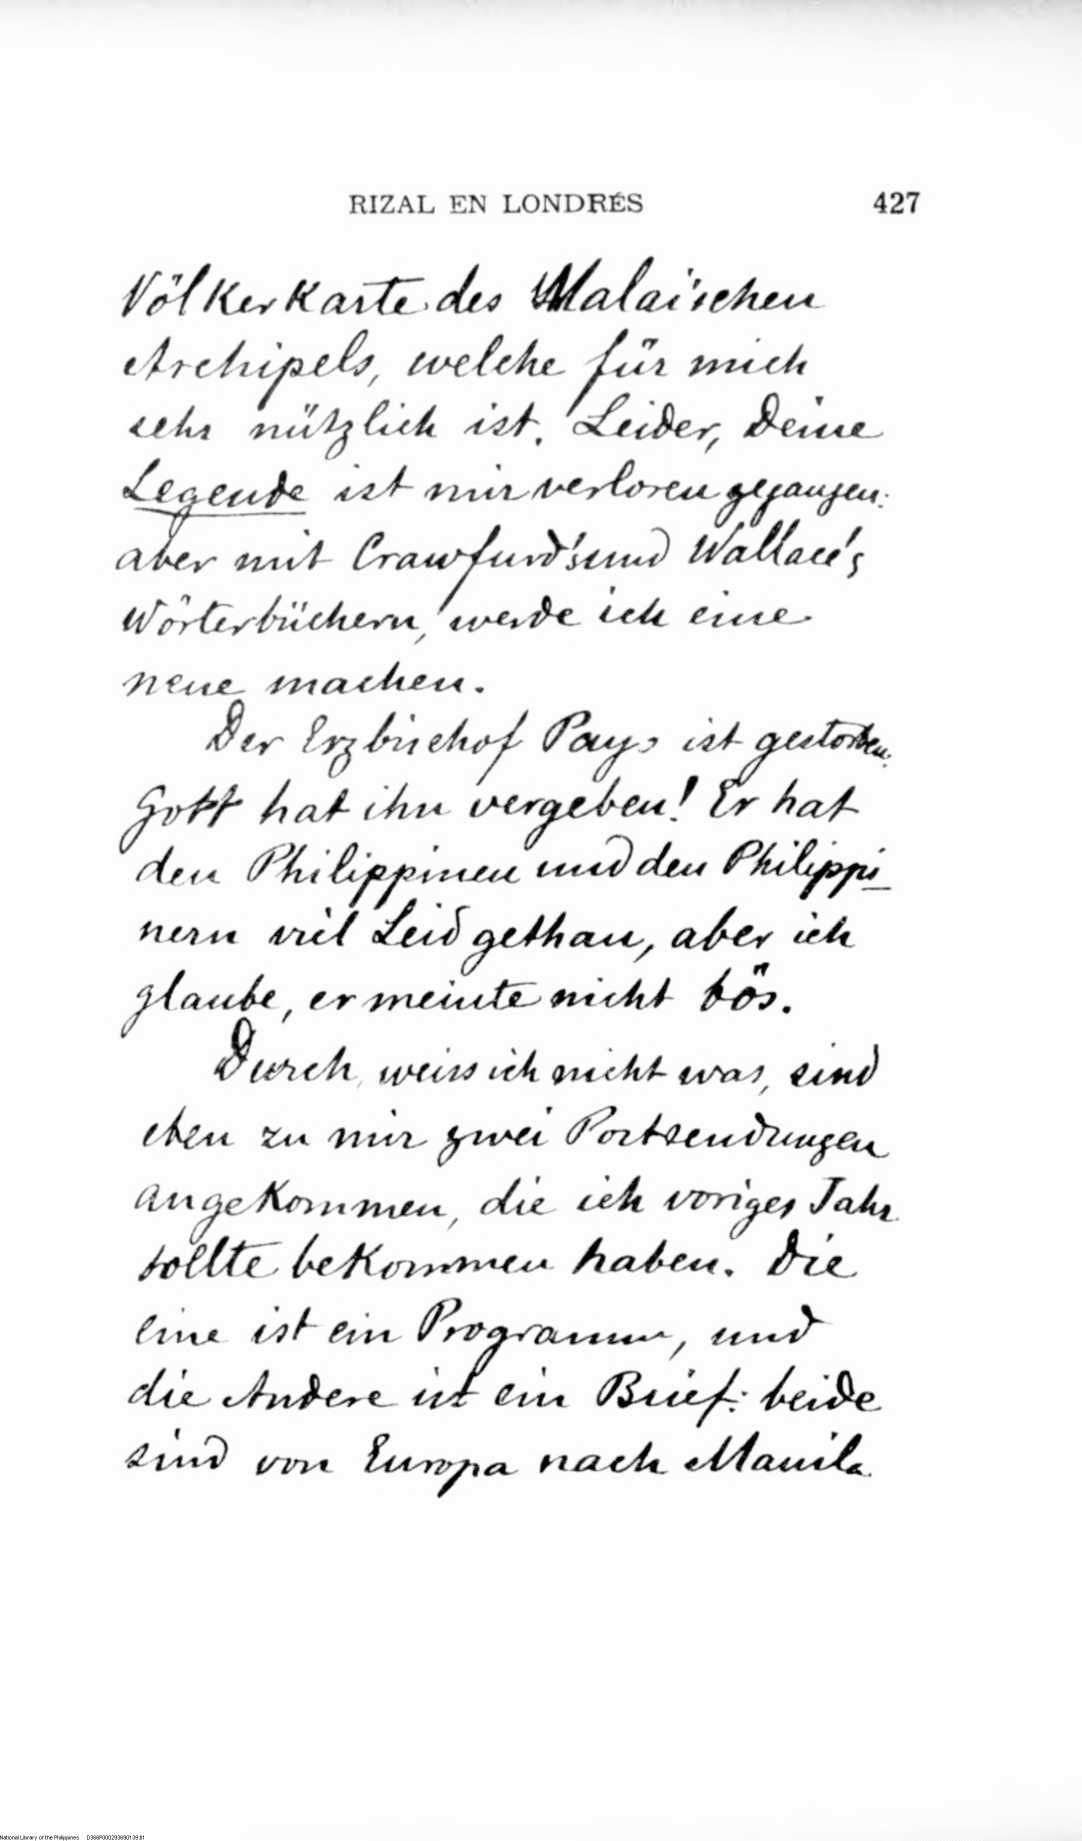 RIZAL EN LONDRES 427
Völkerkarte des Malaischen
Archipels, welche für mich
sehr nützlich ist. Leider, Deine
Legende ist mir verloren gegangen:
aber mit Crawfurd's und Wallace's
Wörterbüchern, werde ich eine
neue machen.
Der Erzbischof Payo ist gestorben.
Gott hat ihn vergeben! Er hat
den Philippinen und den Philippi
nern viel Leid gethan, aber ich
glaube, er meinte nicht bös.
Durch, weiss ich nicht was, sind
eben zu mir zwei Postsendungen
angekommen, die ich voriges Jahr
sollte bekommen haben. Die
eine ist ein Programm, und
die Andere ist ein Brief: beide
sind von Europa nach Manila
National Library of the Philippines